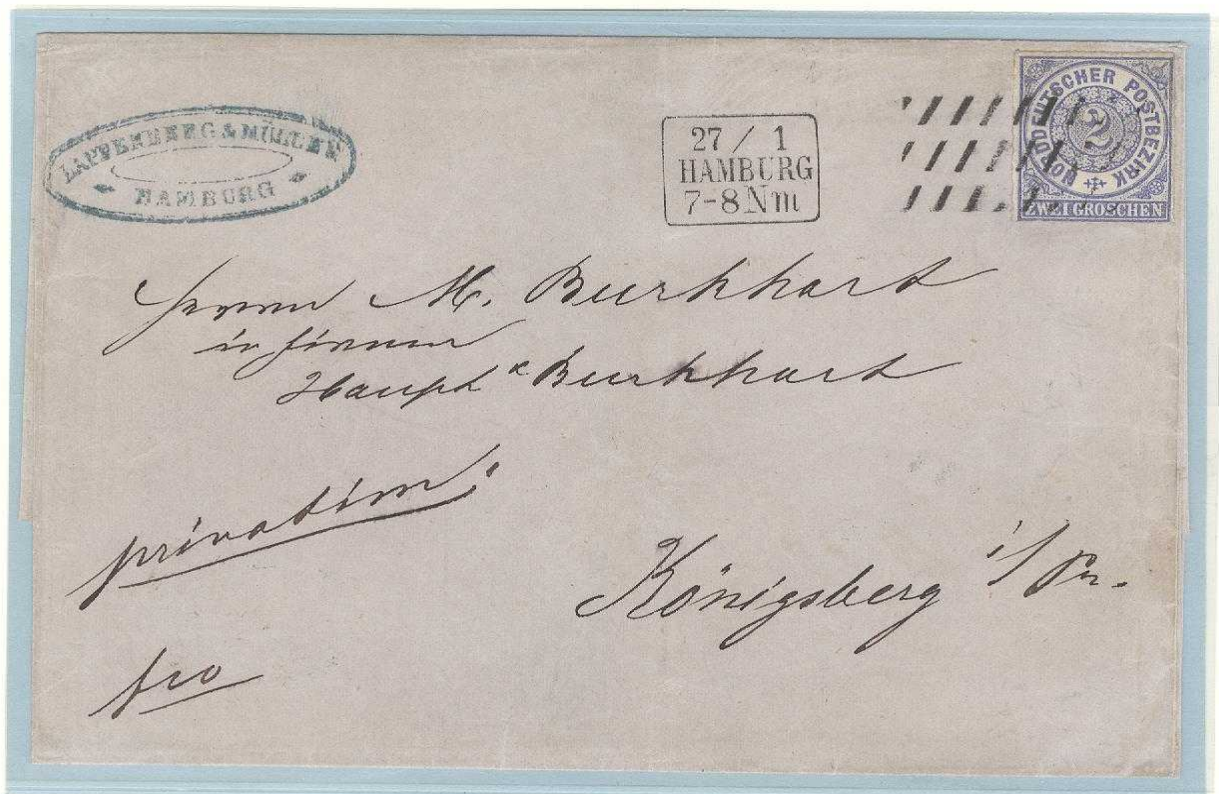 LAPPENBERG & MÜLLER
HAMBURG
27 / 1
HAMBURG
7-8 Nm
NORDDEUTSCHER POSTBEZIRK
2
ZWEI GROSCHEN
Herrn M. Burkhart
in Firma
Haupt & Burkhart
privatim.
Königsberg i/Pr.
fco